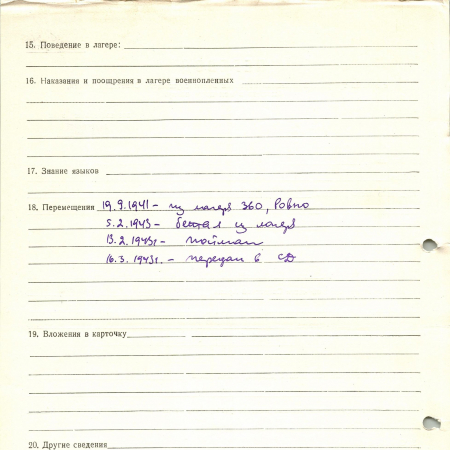 15. Поведение в лагере:
16. Наказания и поощрения в лагере военнопленных
17. Знание языков
18. Перемещения 19.9.1941 - из лагеря 360, Ровно
5.2.1943 - бежал из лагеря
13.2.1943г - пойман
16.3.1943г. - передан в СД
19. Вложения в карточку
20. Другие сведения